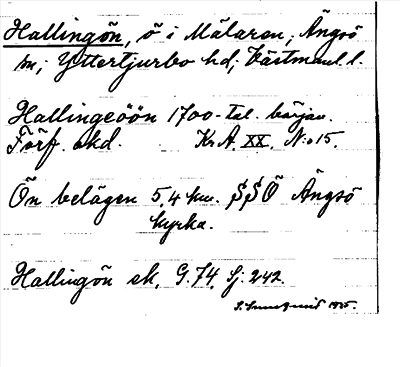 Hallingön, ö i Mälaren; Ängsö
sn; Yttertjurbo hd; Västmanl. l.
Hallingeöön 1700-tal. början.
Förf. okd. Kr.A. XX. N:o 15.
Ön belägen 5,4 km. SSÖ Ängsö
kyrka.
Hallingön ek. G.74. Sj. 242.
1925.